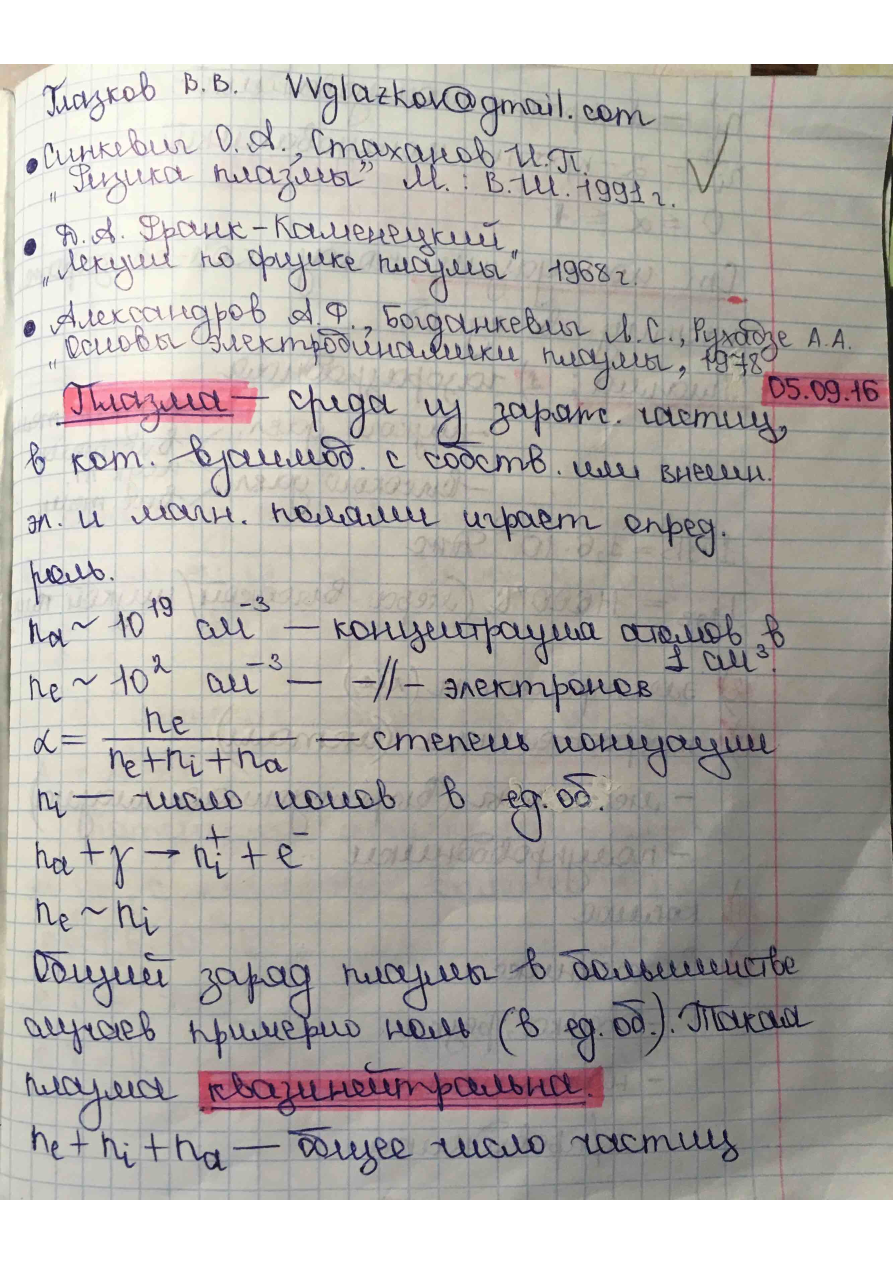 Глазков В.В. VVglazkov@gmail.com
• Синкевич О.А., Стаханов И.П.
„Физика плазмы” М.: В.Ш. 1991 г.
• Д.А. Франк-Каменецкий
„Лекции по физике плазмы” 1968 г.
• Александров А.Ф., Богданкевич Л.С., Рухадзе А.А.
„Основы электродинамики плазмы, 1978
05.09.16
Плазма — среда из заряж. частиц,
в кот. взаимод. с собств. или внешн.
эл. и магн. полями играет опред.
роль.
nₐ ~ 10¹⁹ см⁻³ — концентрация атомов в
1 см³.
nₑ ~ 10² см⁻³ — –//– электронов
α = nₑ / (nₑ + nᵢ + nₐ) — степень ионизации
nᵢ — число ионов в ед. об.
nₐ + γ → nᵢ⁺ + e⁻
nₑ ~ nᵢ
Общий заряд плазмы в большинстве
случаев примерно ноль (в ед. об.). Такая
плазма квазинейтральна.
nₑ + nᵢ + nₐ — общее число частиц